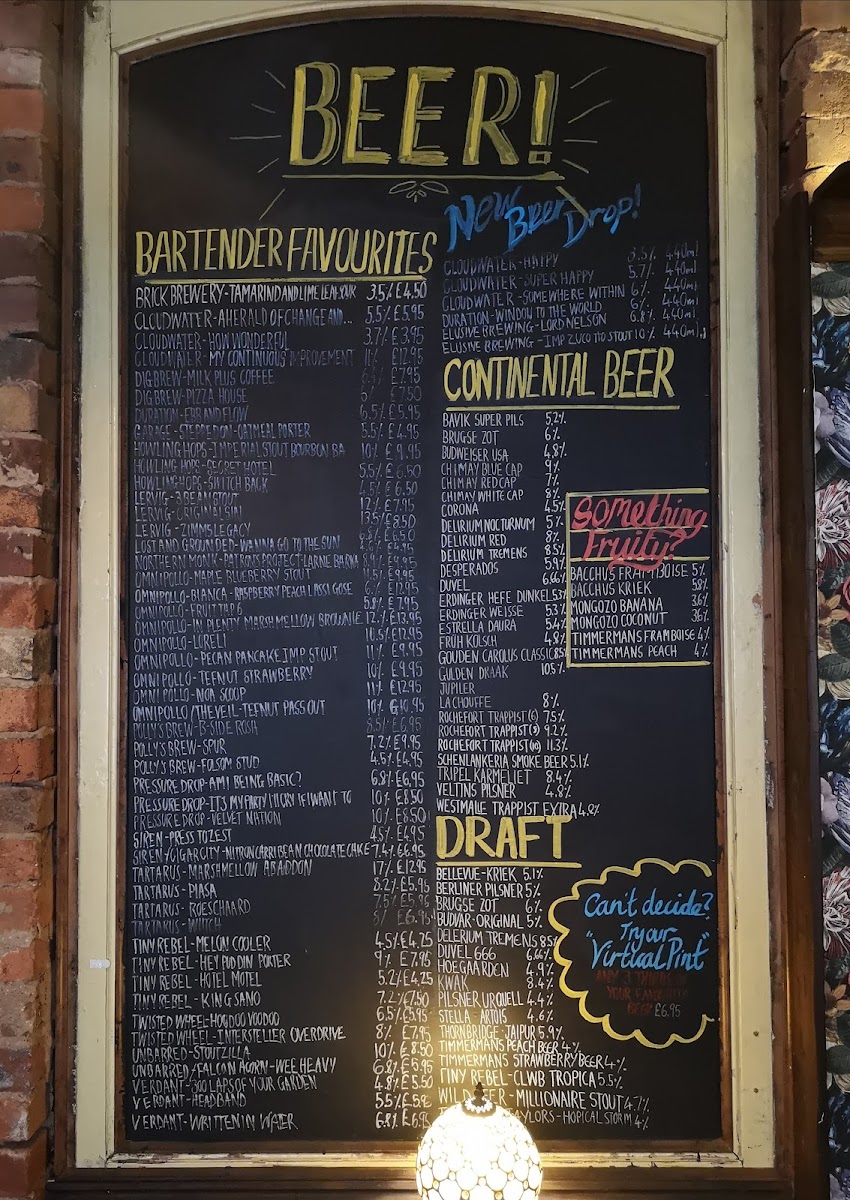 BEER!
BARTENDER FAVOURITES
BRICK BREWERY-TAMARIND AND LIME LEAF SOUR 3.5% £4.50
CLOUDWATER-A HERALD OF CHANGE AND... 5.5% £5.95
CLOUDWATER-HOW WONDERFUL 3.7% £3.95
CLOUDWATER-MY CONTINUOUS IMPROVEMENT 11% £12.95
DIG BREW-MILK PLUS COFFEE £7.95
DIG BREW-PIZZA HOUSE £7.50
DURATION-EBB AND FLOW 6.5% £5.95
GARAGE-STEPPED ON-OATMEAL PORTER 5.5% £4.95
HOWLING HOPS-IMPERIAL STOUT BOURBON BA 10% £9.95
HOWLING HOPS-SECRET HOTEL 5.5% £6.50
HOWLING HOPS-SWITCH BACK £6.50
LERVIG-3 BEAN STOUT
LERVIG-ORIGINAL SIN £7.95
LERVIG-ZIMMS LEGACY 13.5% £8.50
LOST AND GROUNDED-WANNA GO TO THE SUN £6.50
NORTHERN MONK-PATRONS PROJECT-
OMNIPOLLO-MAPLE BLUEBERRY STOUT £9.95
OMNIPOLLO-BIANCA-RASPBERRY PEACH LASSI GOSE 6% £7.95
OMNIPOLLO-FRUIT TAP 6 £7.95
OMNIPOLLO-IN PLENTY MARSHMELLOW BROWNIE 12% £13.95
OMNIPOLLO-LORELI 10.5% £12.95
OMNIPOLLO-PECAN PANCAKE IMP STOUT 11% £9.95
OMNIPOLLO-TEFNUT STRAWBERRY 10% £9.95
OMNIPOLLO-NOA SCOOP 11% £12.95
OMNIPOLLO/THE VEIL-TEFNUT PASS OUT 10% £10.95
POLLY'S BREW-B-SIDE ROSA 8.5% £6.95
POLLY'S BREW-SPUR 7.2% £9.95
POLLY'S BREW-FOLSOM STUD 4.5% £4.95
PRESSURE DROP-AM I BEING BASIC? 6.8% £6.95
PRESSURE DROP-ITS MY PARTY I'LL CRY IF I WANT TO 10% £8.50
PRESSURE DROP-VELVET NATION 10% £8.50
SIREN-PRESS TO ZEST 4.5% £4.95
SIREN/CIGAR CITY-NITRON CARRIBEAN CHOCOLATE CAKE 7.4% £6.95
TARTARUS-MARSHMELLOW ABADDON 17% £12.95
TARTARUS-PIASA 8.2% £5.95
TARTARUS-ROESCHAARD 7.5% £5.95
TARTARUS-WHITCH 8% £6.95
TINY REBEL-MELON COOLER 4.5% £4.25
TINY REBEL-HEY PUDDIN PORTER 9% £7.95
TINY REBEL-HOTEL MOTEL 5.2% £4.25
TINY REBEL-KING SANO 7.2% £7.50
TWISTED WHEEL-HOODOO VOODOO 6.5% £5.95
TWISTED WHEEL-INTERSTELLER OVERDRIVE 8% £7.95
UNBARRED-STOUTZILLA 10% £8.50
UNBARRED/FALCON ACORN-WEE HEAVY 6.8% £5.95
VERDANT-300 LAPS OF YOUR GARDEN 4.8% £5.50
VERDANT-HEADBAND 5.5% £5.95
VERDANT-WRITTEN IN WATER 6.8% £6.95
New Beer Drop!
CLOUDWATER-HAPPY 3.5% 440ml
CLOUDWATER-SUPER HAPPY 5.7% 440ml
CLOUDWATER-SOMEWHERE WITHIN 6% 440ml
DURATION-WINDOW TO THE WORLD 6% 440ml
ELUSIVE BREWING-LORD NELSON 6.8% 440ml
ELUSIVE BREWING-IMP ZUCOTTO STOUT 10% 440ml
CONTINENTAL BEER
BAVIK SUPER PILS 5.2%
BRUGSE ZOT 6%
BUDWEISER USA 4.8%
CHIMAY BLUE CAP 9%
CHIMAY RED CAP 7%
CHIMAY WHITE CAP 8%
CORONA 4.5%
DELIRIUM NOCTURNUM
DELIRIUM RED 8%
DELIRIUM TREMENS 8.5%
DESPERADOS 5.9%
DUVEL 6.66%
ERDINGER HEFE DUNKEL 5.3%
ERDINGER WEISSE 5.3%
ESTRELLA DAURA 5.4%
FRÜH KÖLSCH 4.8%
GOUDEN CAROLUS CLASSIC 8.5%
GULDEN DRAAK 10.5%
JUPILER
LA CHOUFFE 8%
ROCHEFORT TRAPPIST (6) 7.5%
ROCHEFORT TRAPPIST (8) 9.2%
ROCHEFORT TRAPPIST (10) 11.3%
SCHENLANKERIA SMOKE BEER 5.1%
TRIPEL KARMELIET 8.4%
VELTINS PILSNER 4.8%
WESTMALLE TRAPPIST EXTRA 4.8%
Something Fruity?
BACCHUS FRAMBOISE 5%
BACCHUS KRIEK 5.8%
MONGOZO BANANA 3.6%
MONGOZO COCONUT 3.6%
TIMMERMANS FRAMBOISE 4%
TIMMERMANS PEACH 4%
DRAFT
BELLEVUE-KRIEK 5.1%
BERLINER PILSNER 5%
BRUGSE ZOT 6%
BUDVAR-ORIGINAL 5%
DELERIUM TREMENS 8.5%
DUVEL 666 6.66%
HOEGAARDEN 4.9%
KWAK 8.4%
PILSNER URQUELL 4.4%
STELLA ARTOIS 4.6%
THORNBRIDGE-JAIPUR 5.9%
TIMMERMANS PEACH BEER 4%
TIMMERMANS STRAWBERRY BEER 4%
TINY REBEL-CLWB TROPICA 5.5%
WILD BEER-MILLIONAIRE STOUT 4.7%
TAYLORS-HOPICAL STORM 4%
Can't decide?
Try our
"Virtual Pint"
ANY 3 THIRDS OF
YOUR FAVOURITE
BEER £6.95